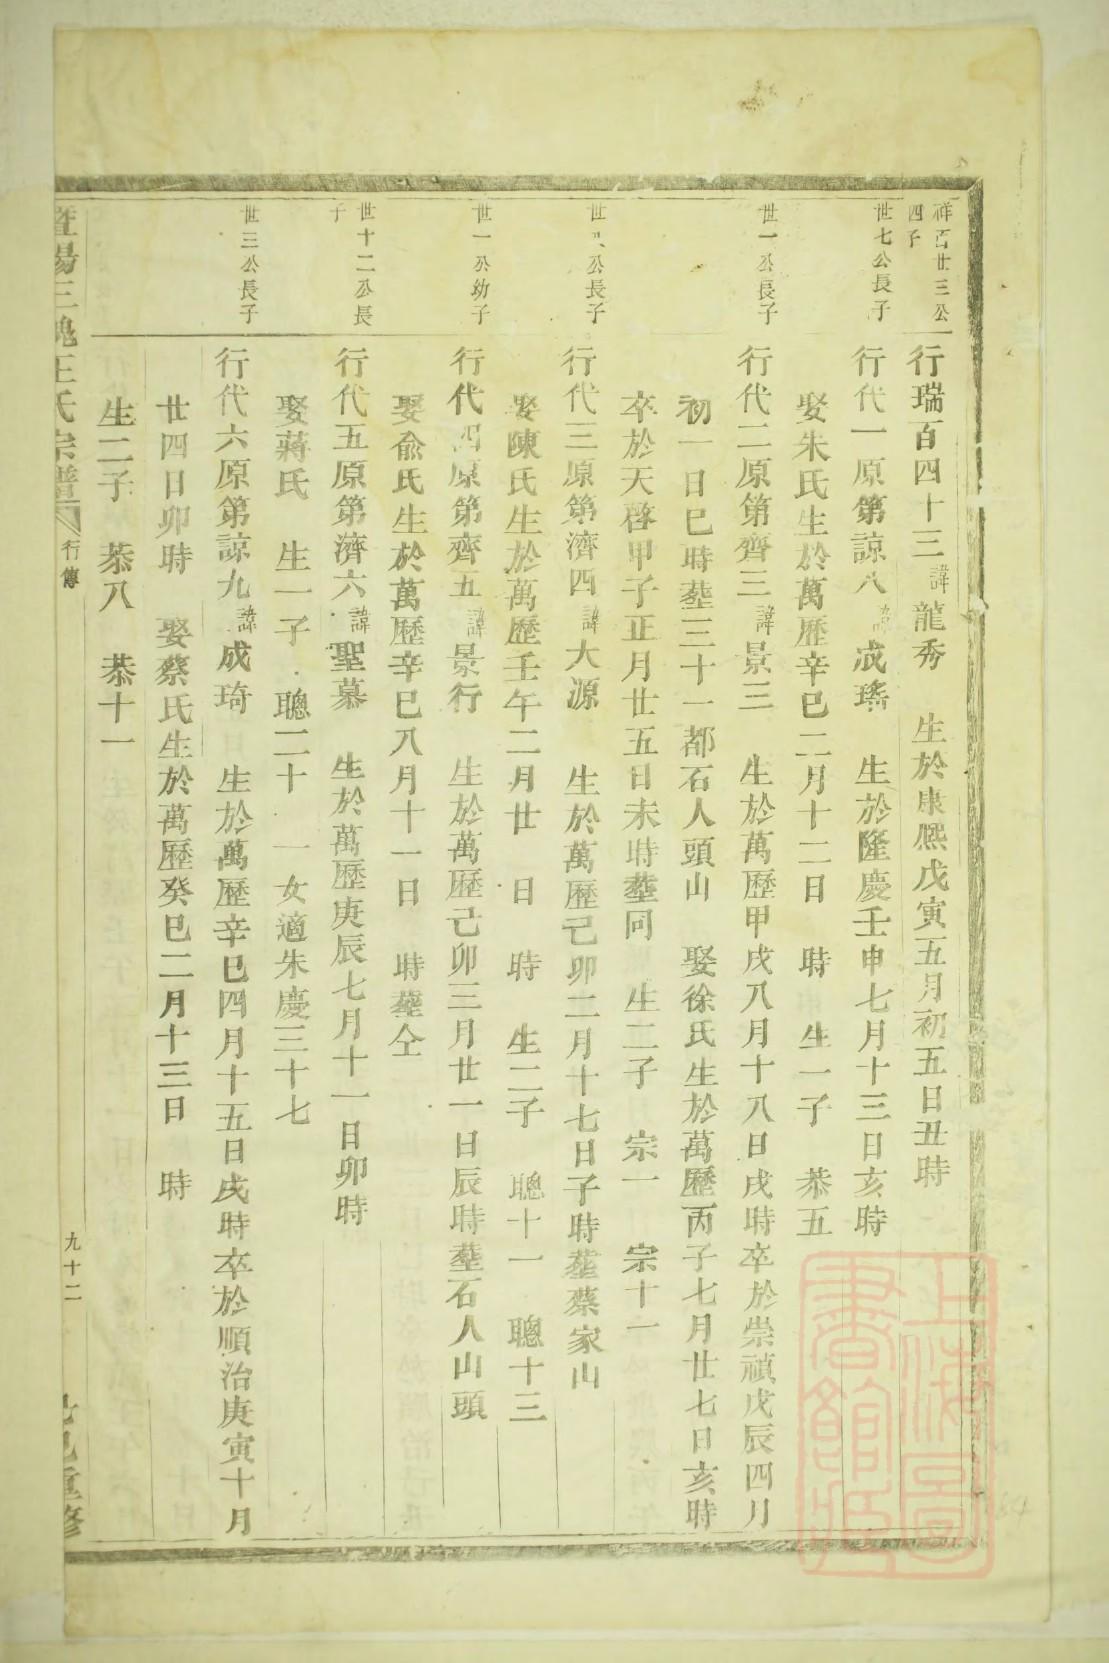 祥百廿三公
四子
行瑞百四十三諱龍秀　生於康熙戊寅五月初五日丑時
世七公長子
行代一原第諒八諱成瑤　生於隆慶壬申七月十三日亥時
娶朱氏生於萬歷辛巳二月十二日　時　生一子　恭五
世一公長子
行代二原第齊三諱景三　生於萬歷甲戌八月十八日戌時卒於崇禎戊辰四月
初一日巳時塟三十一都石人頭山　娶徐氏生於萬歷丙子七月廿七日亥時
卒於天啓甲子正月廿五日未時塟同　生二子　宗一　宗十一
世八公長子
行代三原第濟四諱大源　生於萬歷己卯二月十七日子時塟蔡家山
娶陳氏生於萬歷壬午二月廿　日　時　生二子　聰十一　聰十三
世一公幼子
行代四原第齊五諱景行　生於萬歷己卯三月廿一日辰時塟石人山頭
娶俞氏生於萬歷辛巳八月十一日　時塟仝
世十二公長
子
行代五原第濟六諱聖慕　生於萬歷庚辰七月十一日卯時
娶蔣氏　生一子　聰二十　一女適朱慶三十七
世三公長子
行代六原第諒九諱成琦　生於萬歷辛巳四月十五日戌時卒於順治庚寅十月
廿四日卯時　娶蔡氏生於萬歷癸巳二月十三日　時
生二子　恭八　恭十一
暨陽三槐王氏宗譜　行傳　九十二　重修
上海圖
書館藏